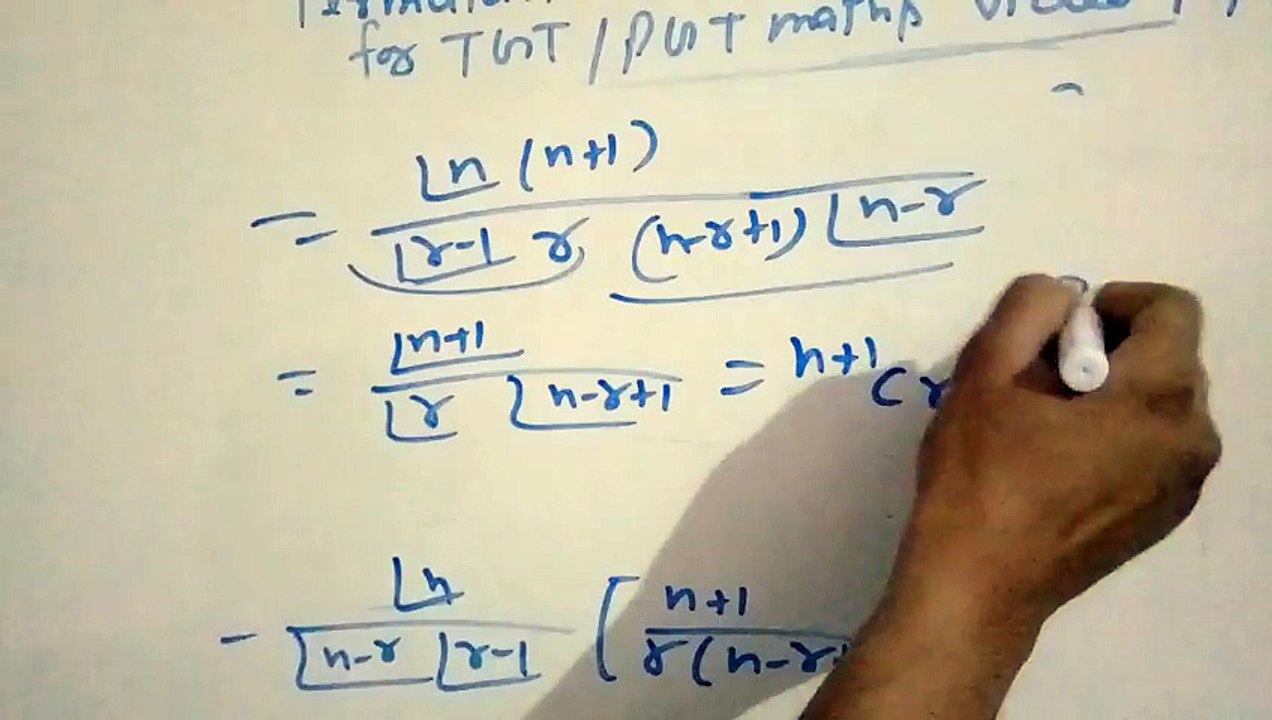 for TGT / PGT maths
= ⌊n (n+1) / ⌊r-1 r (n-r+1) ⌊n-r
= ⌊n+1 / ⌊r ⌊n-r+1 = n+1Cr
- ⌊n / ⌊n-r ⌊r-1 [ n+1 / r(n-r+